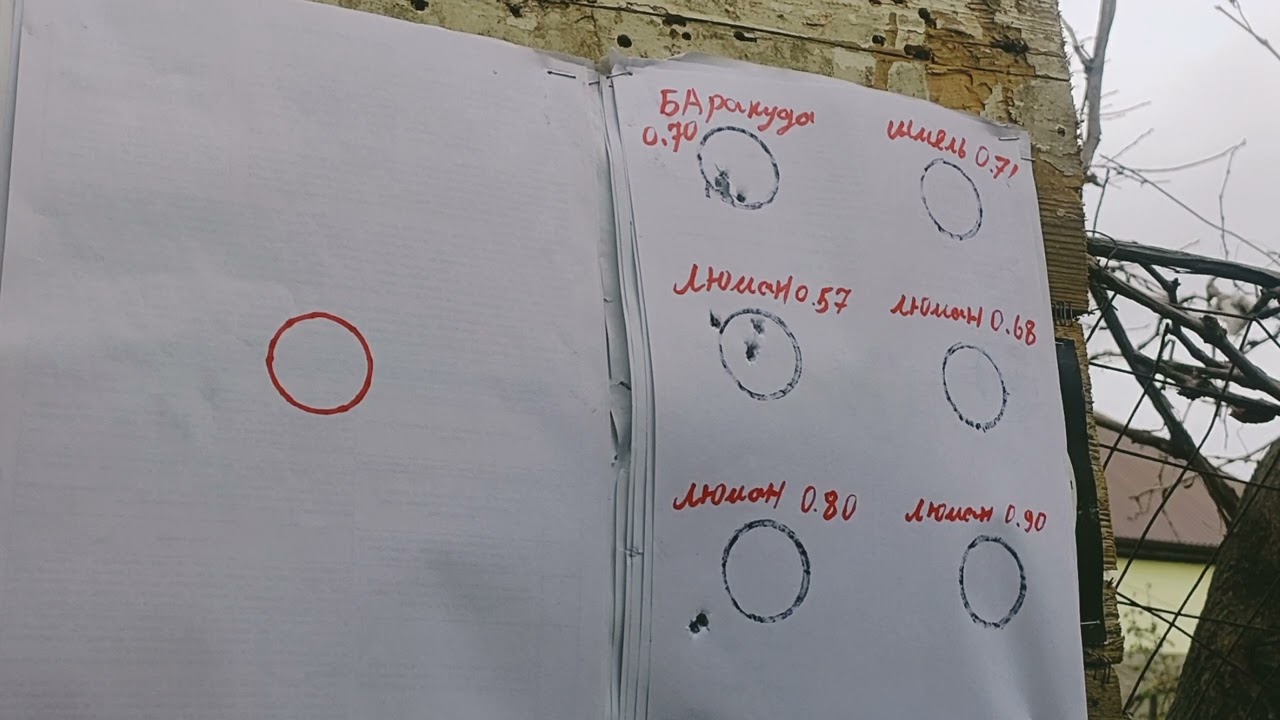 БАракуда
0.70
шмель 0.71
люман 0.57
люман 0.68
люман 0.80
люман 0.90